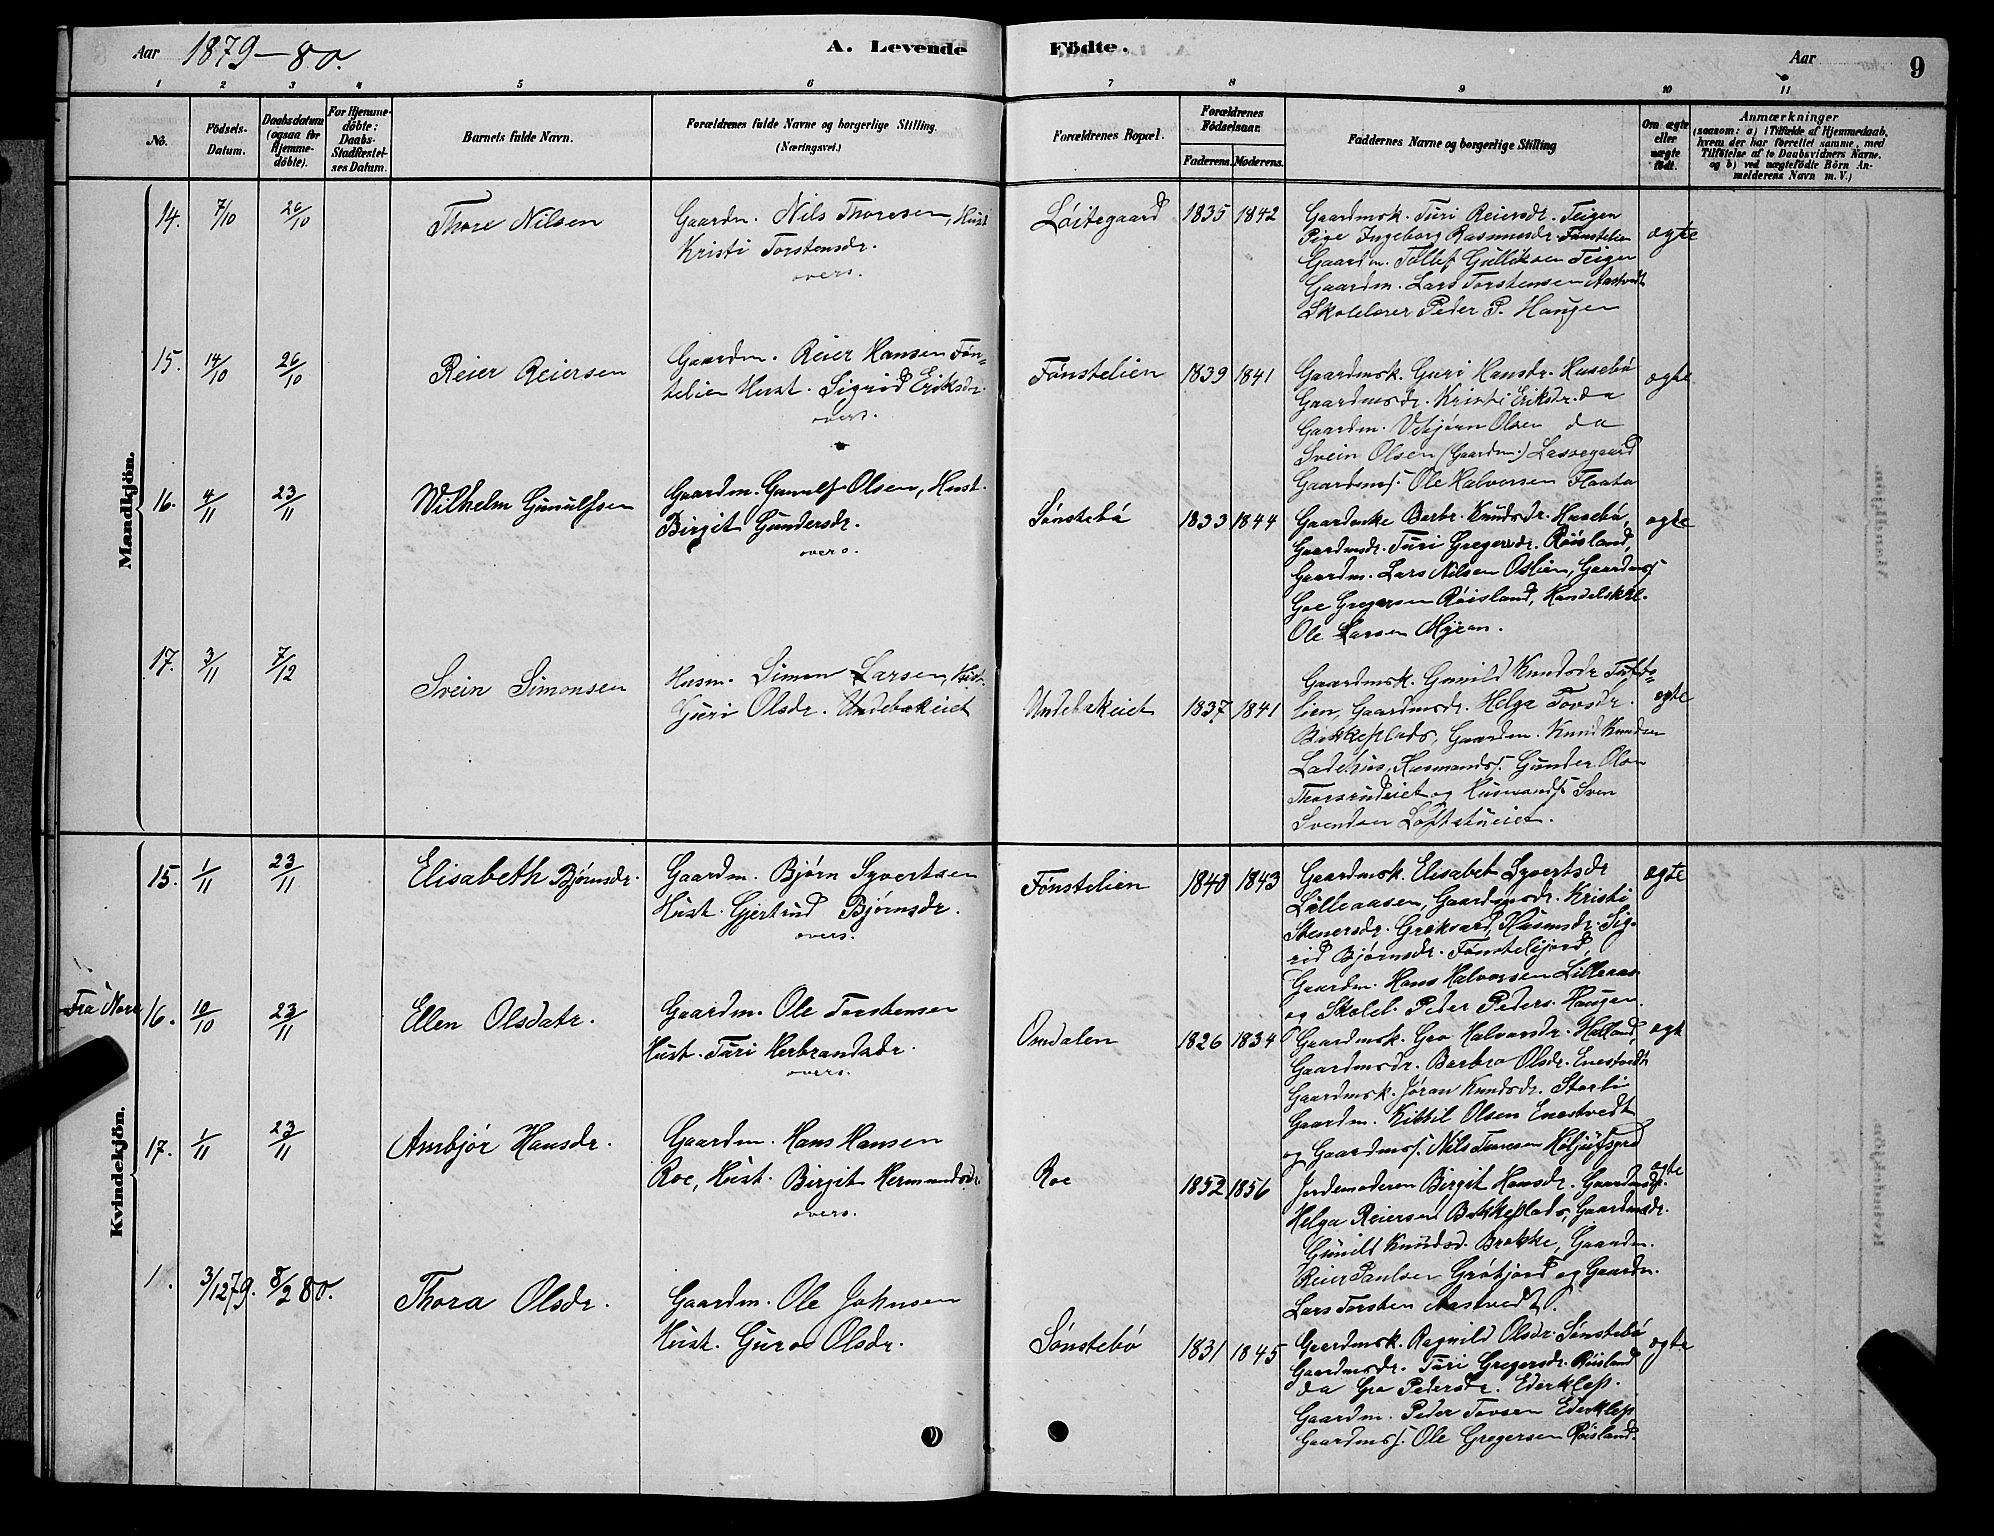 Aar 1879–80. A. Levende Födte. Aar 9
1 2 3 4 5 6 7 8 9 10 11
No.
Födsels-Datum.
Daabsdatum (ogsaa for Hjemme-döbte).
For Hjemme-döbte: Daabs-Stadfæstel-ses Datum.
Barnets fulde Navn.
Forældrenes fulde Navne og borgerlige Stilling.
(Næringsvei.)
Forældrenes Bopæl.
Forældrenes Födselsaar.
Faderens. Moderens.
Faddernes Navne og borgerlige Stilling
Om ægte eller uægte födt.
Anmærkninger
(saasom: a) i Tilfælde af Hjemmedaab, hvem der har forrettet samme, med Tilföielse af to Daabsvidners Navne, og b) ved uægtefödte Börn An-melderens Navn m. V.)
Mandkjön.
14. 7/10 26/10 Thore Nilsen
Gaardm. Nils Thoresen, Hust
Kristi Torstensdr.
overs.
Loitegaard 1835 1842
Gaardmsk. Turi Reiersdr. Teigen
Pige Ingeborg Rasmusdr. Fønstelien
Gaardm. Tollef Gulliksen Teigen
Gaardm. Lars Torstensen Aastvedt
Skolelærer Peder P. Haugen
ægte
15. 14/10 26/10 Reier Reiersen
Gaardm. Reier Hansen Føn-
stelien Hust. Sigrid Eriksdr.
overs.
Fønstelien 1839 1841
Gaardmsk. Guri Hansdr. Husebö
Gaardmsdr. Kristi Eriksdr. da
Gaardm. Vebjørn Olsen da
Svein Olsen (Gaardm.) Lassegaard
Gaardms. Ole Halvorsen Flaata
ægte
16. 4/11 23/11 Wilhelm Gunulfsen
Gaardm. Gunulf Olsen, Hust.
Birgit Gundersdr.
overs.
Sønstebö 1833 1844
Gaardmke Barbr. Knudsdr. Husebö,
Gaardmsdr. Turi Gregersdr. Røisland,
Gaardm. Lars Nilsen Oslien, Gaardms.
Goe Gregersen Røisland, Handelskrl.
Ole Larsen Myran.
ægte
17. 3/11 7/12 Svein Simonsen
Husm. Simon Larsen, Hust.
Guri Olsdr. Undebakeiet
Undebakeiet 1837 1841
Gaardmsk. Gunild Knudsdr.
lien, Gaardmsdr. Helga Tovsdr.
Bakkeplads, Gaardm. Knud Knudsen
Ladehus, Husmands. Gunder Olsen
Thorsrudeiet og Husmands. Sven
Svendsen Loftstueiet.
ægte
Kvindekjön.
15. 1/11 23/11 Elisabeth Bjørnsdr.
Gaardm. Bjørn Syvertsen
Hust. Gjertrud Bjørnsdr.
overs.
Fønstelien 1840 1843
Gaardmsk. Elisabet Syvertsdr
Lilleaasen, Gaardmsdr. Kristi
Stenersdr. Husmsdr. Sig-
rid Bjørnsdr. Fønsteliijord,
Gaardm. Hans Halvorsen Lilleaas
og Skolel. Peder Peders. Haugen
ægte
Fra Nore 16. 10/10 23/11 Ellen Olsdatr.
Gaardm. Ole Torstensen
Hust. Turi Herbrandsdr.
overs.
Omdalen 1826 1834
Gaardmsk. Gro Halvorsdr. Halland,
Gaardmsdr. Barbro Olsdr. Enestvedt
Gaardmsk. Jøran Knudsdr. Storli
Gaardm. Kittil Olsen Enestvedt
og Gaardms. Nils Tovesen
ægte
17. 1/11 23/11 Ambjør Hansdr.
Gaardm. Hans Hansen
Roe, Hust. Birgit Hermundsdr.
overs.
Roe 1852 1856
Jordemoderen Birgit Hansdr. Gaardmsk.
Helga Reiersen Bakkeplads, Gaardmsdr.
Gunild Knudsd. Brokke, Gaardm.
Reier Paulsen Grøtjord og Gaardm.
Lars Torsten Aastvedt.
ægte
1. 3/12 79. 8/2 80. Thora Olsdr.
Gaardm. Ole Johnsen
Hust. Guro Olsdr.
Sønstebö 1831 1845
Gaardmsk. Ragnild Olsdr. Sønstebö
Gaardmsdr. Turi Gregersdr. Røisland
da Gro Pedersdr. Ederklep.
Gaardm. Peder Tovsen Ederklep
Gaardms. Ole Gregersen Røisland.
ægte